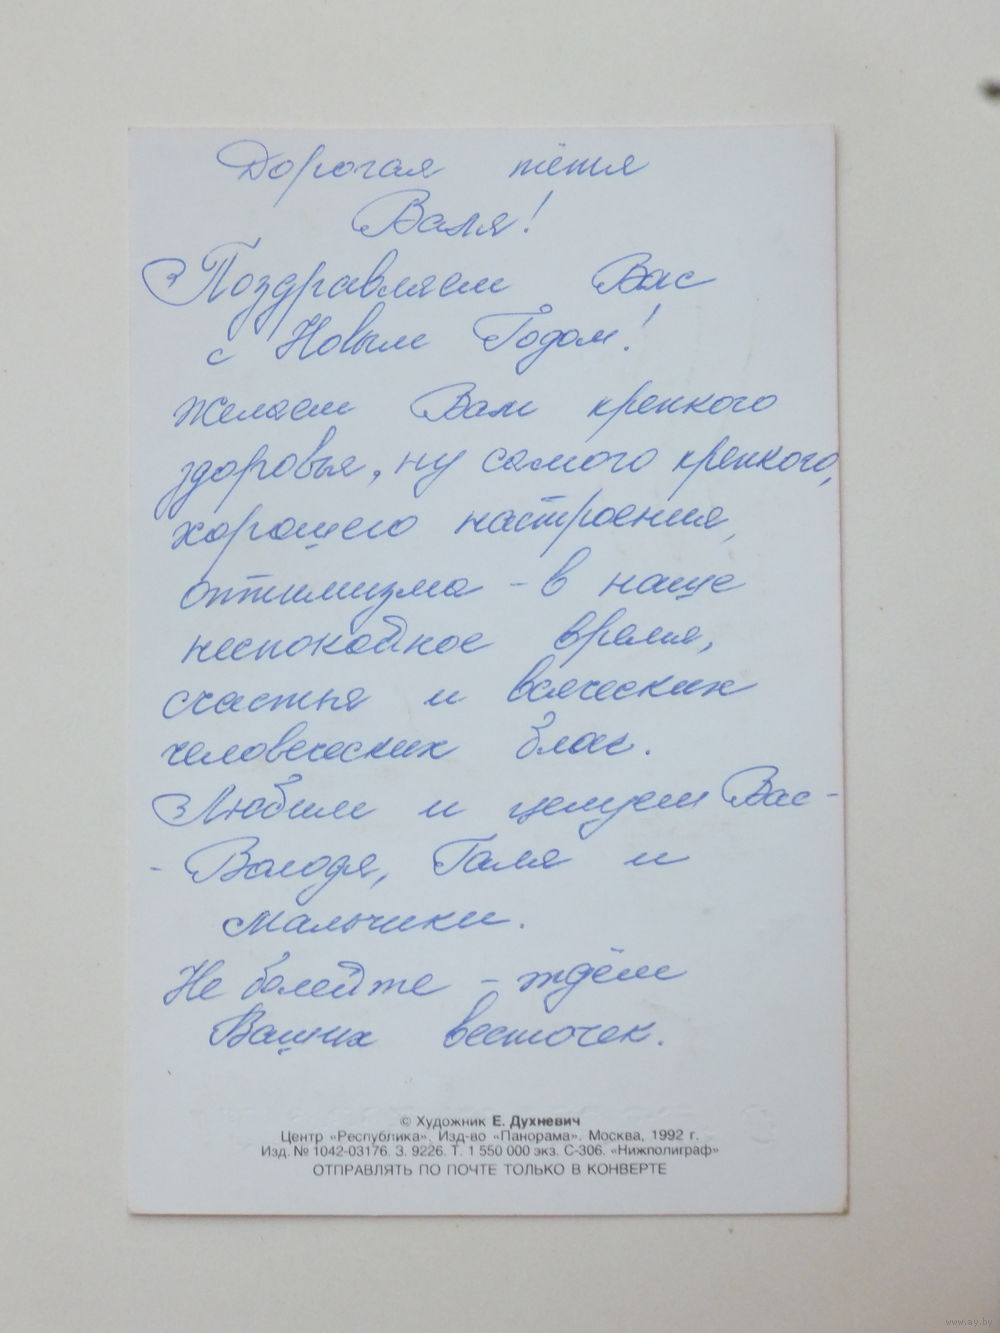 Дорогая тётя
Валя!
Поздравляем Вас
с Новым Годом!
Желаем Вам крепкого
здоровья, ну самого крепкого,
хорошего настроения,
оптимизма - в наше
неспокойное время,
счастья и всяческих
человеческих благ.
Любим и целуем Вас -
- Володя, Галя и
мальчики.
Не болейте - ждём
Ваших весточек.
© Художник Е. Духневич
Центр «Республика». Изд-во «Панорама». Москва, 1992 г.
Изд. № 1042-03176. З. 9226. Т. 1 550 000 экз. С-306. «Нижполиграф»
ОТПРАВЛЯТЬ ПО ПОЧТЕ ТОЛЬКО В КОНВЕРТЕ
www.ay.by